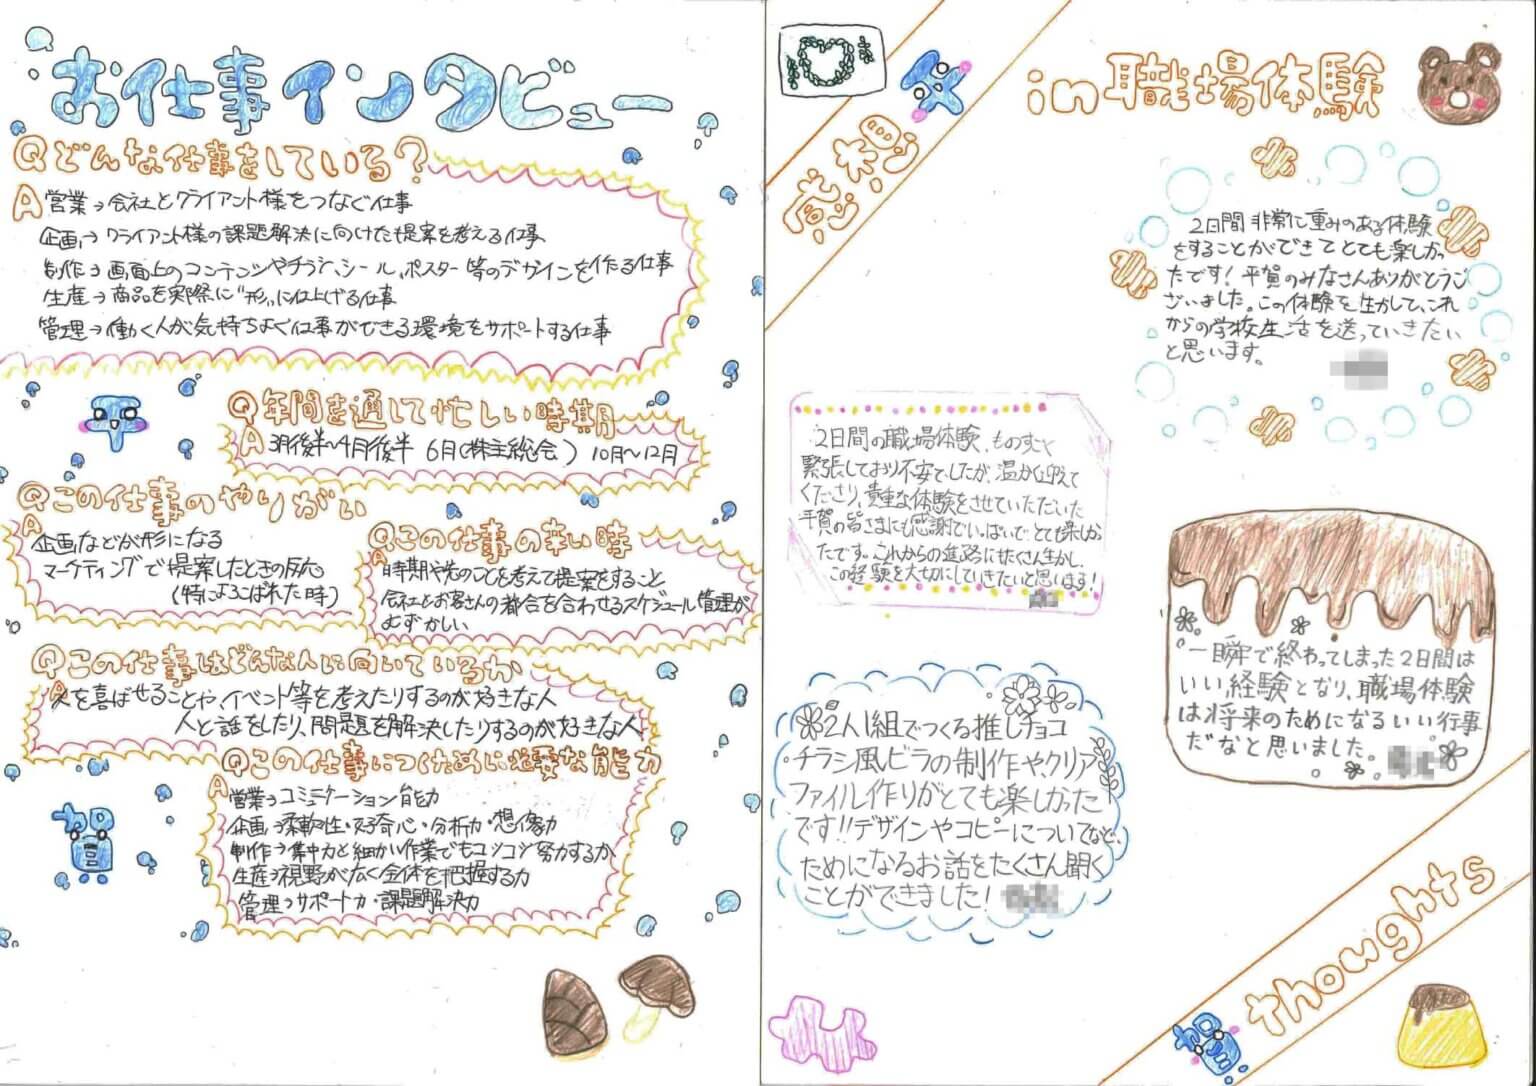 お仕事インタビュー
Qどんな仕事をしている?
A営業→会社とクライアント様をつなぐ仕事
企画→クライアント様の課題解決に向けた提案を考える仕事
制作→画面上のコンテンツやチラシ、シール、ポスター等のデザインを作る仕事
生産→商品を実際に“形”に仕上げる仕事
管理→働く人が気持ちよく仕事ができる環境をサポートする仕事
Q年間を通して忙しい時期
A3月後半〜4月後半 6月(株主総会) 10月〜12月
Qこの仕事のやりがい
A企画などが形になる
マーケティングで提案したときの反応
(特によろこばれた時)
Qこの仕事の辛い時
A時期や先のことを考えて提案をすること
会社とお客さんの都合を合わせるスケジュール管理が
むずかしい
Qこの仕事はどんな人に向いているか
A人を喜ばせることや、イベント等を考えたりするのが好きな人
人と話をしたり、問題を解決したりするのが好きな人
Qこの仕事につくために必要な能力
A営業→コミュニケーション能力
企画→柔軟性・好奇心・分析力・想像力
制作→集中力と細かい作業でもコツコツ努力する力
生産→視野が広く全体を把握する力
管理→サポート力・課題解決力
平
賀
in職場体験
感想
平
2日間非常に重みのある体験
をすることができてとても楽しかっ
たです!平賀のみなさんありがとうご
ざいました。この体験を生かして、これ
からの学校生活を送っていきたい
と思います。
2日間の職場体験、ものすごく
緊張しており不安でしたが、温かく迎えて
くださり、貴重な体験をさせていただいた
平賀の皆さまにも感謝でいっぱいで、とても楽しか
ったです。これからの進路にもたくさん生かし、
この経験を大切にしていきたいと思います!
一瞬で終わってしまった2日間は
いい経験となり、職場体験
は将来のためになるいい行事
だなと思いました。
2人1組でつくる推しチョコ
チラシ風ビラの制作や、クリア
ファイル作りがとても楽しかった
です!!デザインやコピーについてなど、
ためになるお話をたくさん聞く
ことができました!
thoughts
賀